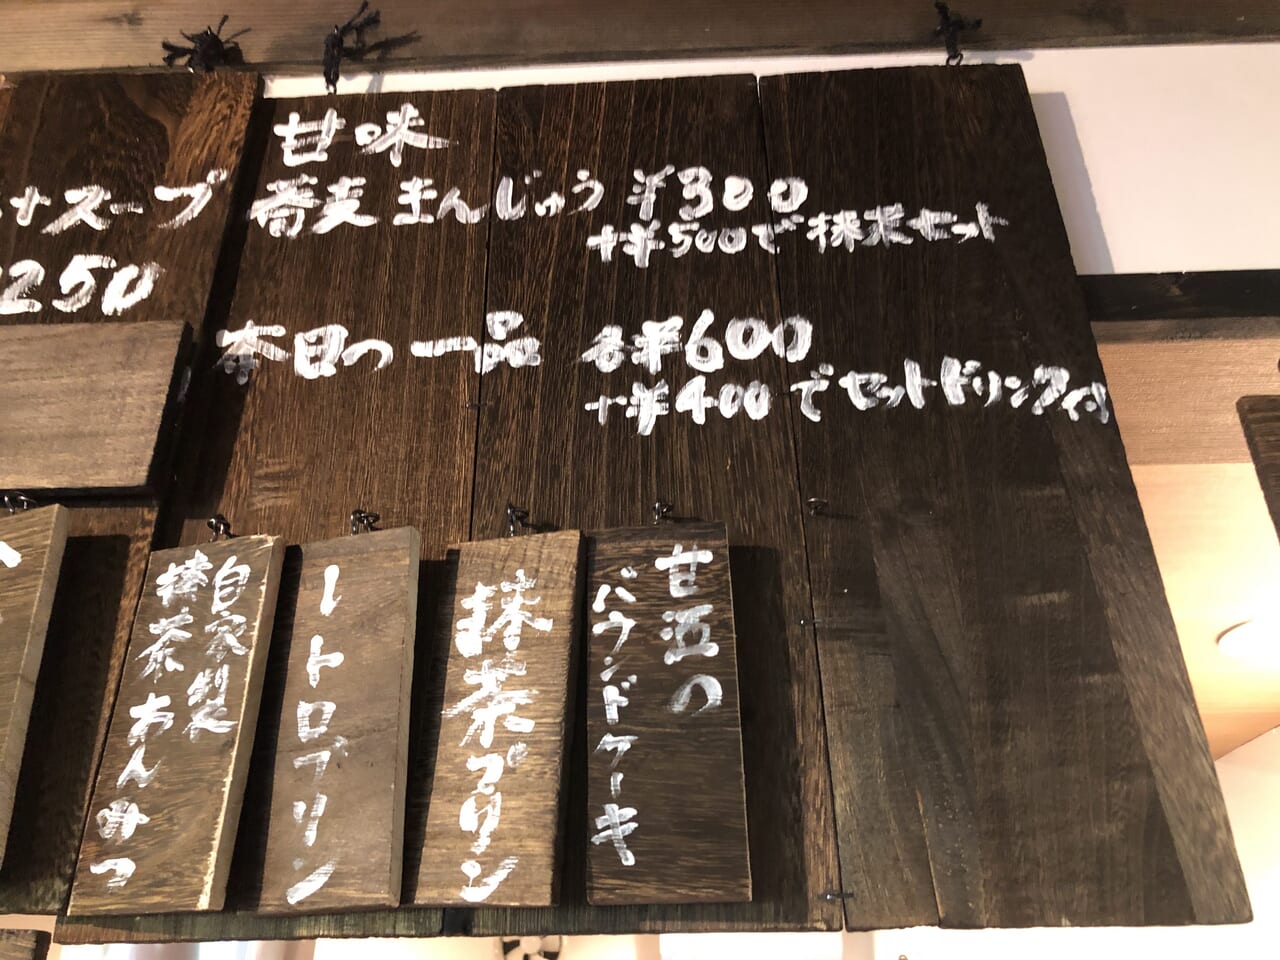 甘味
蕎麦まんじゅう ¥300
+¥500で抹茶セット
本日の一品 各¥600
+¥400でセットドリンク付
スープ
250
甘酒の
パウンドケーキ
抹茶プリン
レトロプリン
自家製
抹茶あんみつ